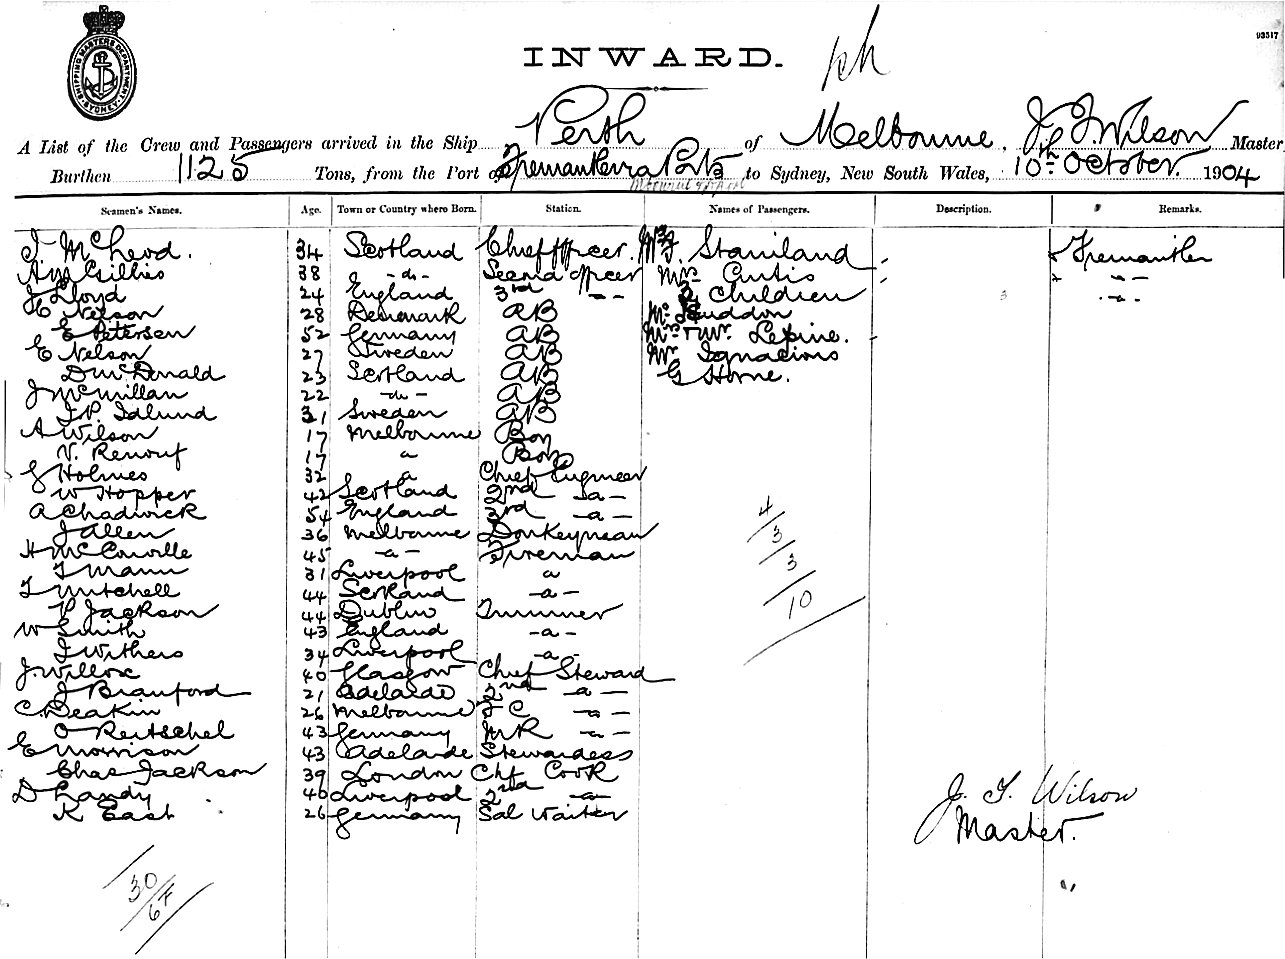 93517
INWARD.
SHIPPING MASTERS DEPARTMENT SYDNEY
A List of the Crew and Passengers arrived in the Ship Perth of Melbourne, J. F. Wilson Master
Burthen 1125 Tons, from the Port of Fremantle via Ports to Sydney, New South Wales, 10th October 1904
Seamen's Names. Age. Town or Country where Born. Station. Names of Passengers. Description. Remarks.
34 Scotland Chief Officer. Staniland Fremantle
A Gillies 38 -do- Second Officer Mrs Curtis -"-
J Lloyd 24 England 3rd -"- 2 Children -"-
Nelson 28 Denmark AB
E Petersen 52 Germany AB Mr & Mrs Lepine.
E Nelson 27 Sweden AB Mr Ignacious
D McDonald 23 Scotland AB G Horne.
J McMillan 22 -do- AB
Idlund 31 Sweden AB
A Wilson 17 Melbourne Boy
V. Renouf 17 " Boy
G Holmes 32 " Chief Engineer
W Hopper 42 Scotland 2nd -"-
A Chadwick 54 England 3rd -"-
J Allen 36 Melbourne Donkeyman
H McConville 45 -"- Fireman
T Mann 31 Liverpool "
T Mitchell 44 Scotland -"-
P Jackson 44 Dublin Trimmer
W Smith 43 England -"-
J Withers 34 Liverpool -"-
J. Willox 40 Glasgow Chief Steward
J Branford 21 Adelaide 2nd -"-
C. Deakin 26 Melbourne F C -"-
O Reitschel 43 Germany M R -"-
E Morrison 43 Adelaide Stewardess
Chas Jackson 39 London Chf Cook
D Landy 40 Liverpool 2nd -"-
K East 26 Germany Sal Waiter
4
3
3
10
J. F. Wilson
Master.
30